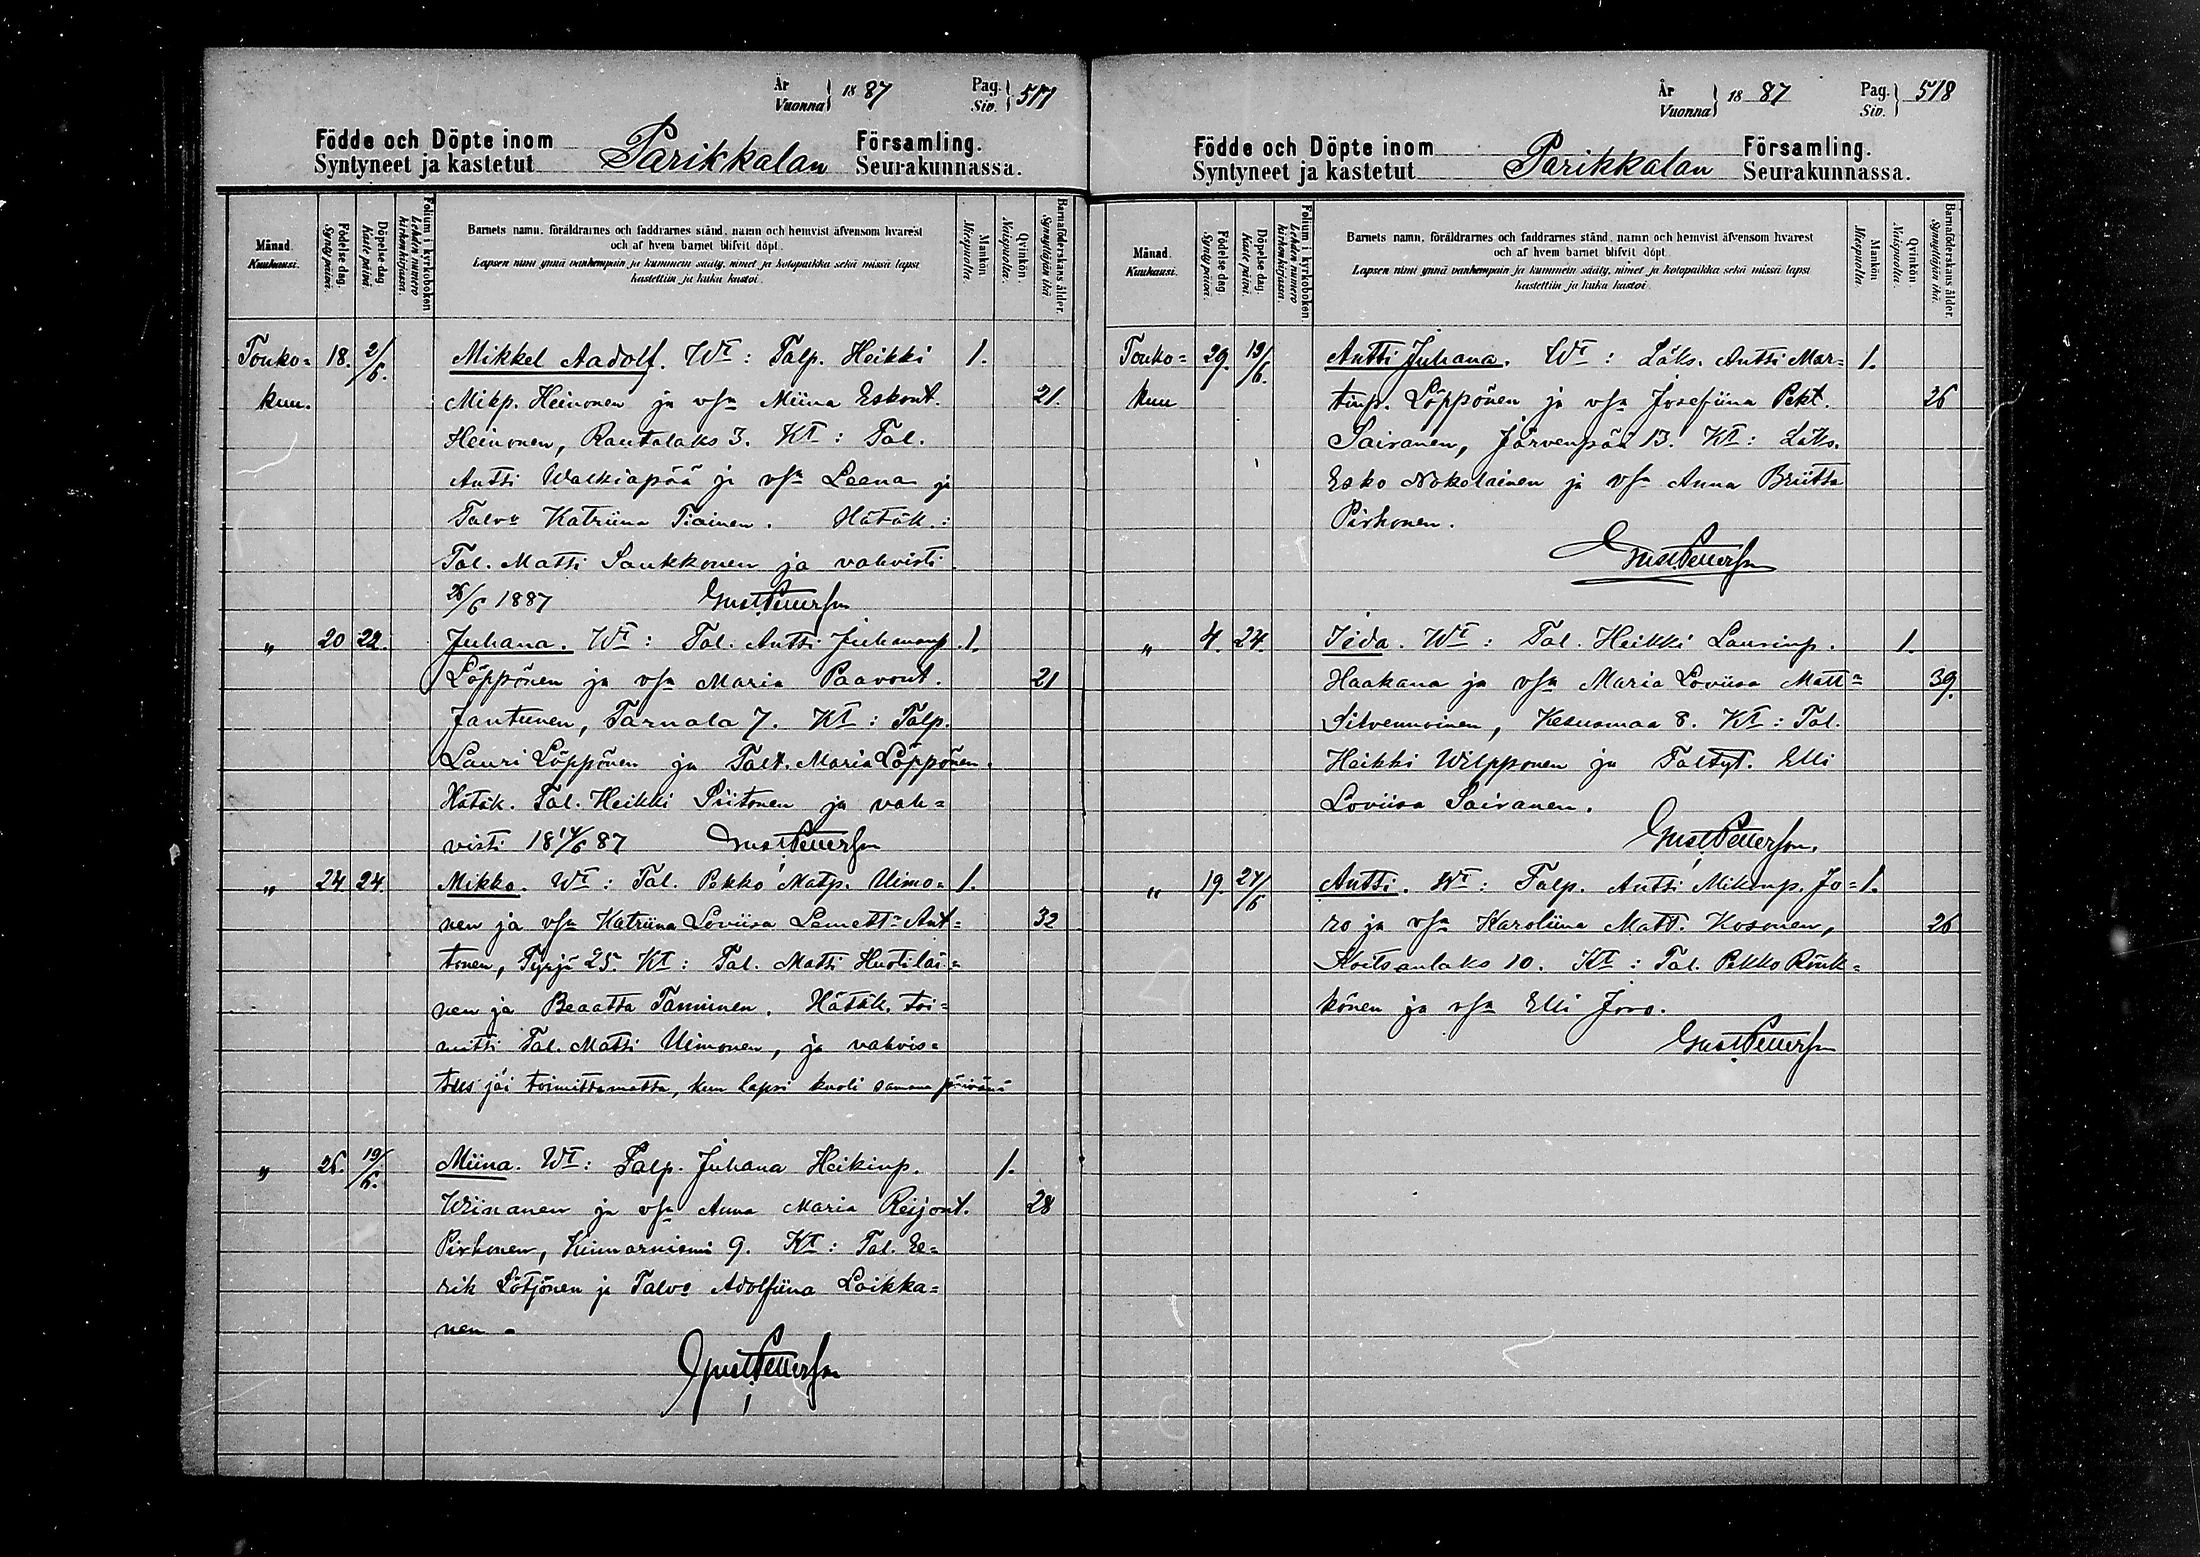 År
Vuonna } 1887
Pag.
Siv. } 517
Födde och Döpte inom
Syntyneet ja kastetut Parikkalan
Församling.
Seurakunnassa.
Månad. Kuukausi.
Födelse dag. Syntypäivä.
Döpelse dag. Kaste päivä.
Folium i kyrkoboken Lehden numero kirkonkirjassa.
Barnets namn, föräldrarnes och faddrarnes stånd, namn och hemvist äfvensom hvarest
och af hvem barnet blifvit döpt.
Lapsen nimi ynnä vanhempain ja kummein sääty, nimet ja kotopaikka sekä missä lapsi
kastettiin ja kuka kastoi.
Mankön Miespuolta.
Qvinkön. Naispuolta.
Barnaföderskans ålder. Synnyttäjän ikä.
Touko= 18. 2/6. Mikkel Aadolf. Wt: Talp. Heikki 1.
kuu. Mikp. Heinonen ja vsa Miina Eskont. 21.
Heinonen, Rautalaks 3. Kt: Tal.
Antti Walkiapää ja vsa Leena ja
Talvo Katriina Tiainen. Hätäk.:
Tal. Matti Saukkonen ja vahvisti
26/6 1887 Gust. Petterson
" 20 22. Juhana. Wt: Tal. Antti Juhananp. 1.
Löppönen ja vsa Maria Paavont. 21
Jantunen, Tarnala 7. Kt: Talp.
Lauri Löppönen ja Talt. Maria Löppönen.
Hätäk. Tal. Heikki Piitonen ja vah=
visti 18 14/6 87 Gust Petterson
" 24 24. Mikko. Wt: Tal. Pekko Matp. Uimo= 1.
nen ja vsa Katriina Loviisa Lemett= Ant= 32
tonen, Tyrjä 25. Kt: Tal. Matti Huotilai=
nen ja Beaatta Tanninen. Hätäk. toi=
mitti Tal. Matti Uimonen, ja vahvis=
tus jäi toimittamatta, kun lapsi kuoli samana päivänä
" 26. 19/6. Miina. Wt: Talp. Juhana Heikinp. 1.
Wiinanen ja vsa Anna Maria Reijont. 28
Pirhonen, Kinnarniemi 9. Kt: Tal. Ee=
rik Lötjönen ja Talvo Adolfiina Loikka=
nen.
Gust Petterson
År
Vuonna } 1887
Pag.
Siv. } 518
Födde och Döpte inom
Syntyneet ja kastetut Parikkalan
Församling.
Seurakunnassa.
Månad. Kuukausi.
Födelse dag. Syntypäivä.
Döpelse dag. Kaste päivä.
Folium i kyrkoboken. Lehden numero kirkonkirjassa.
Barnets namn, föräldrarnes och faddrarnes stånd, namn och hemvist äfvensom hvarest
och af hvem barnet blifvit döpt.
Lapsen nimi ynnä vanhempain ja kummein sääty, nimet ja kotopaikka sekä missä lapsi
kastettiin ja kuka kastoi.
Mankön Miespuolta.
Qvinkön. Naispuolta.
Barnaföderskans ålder. Synnyttäjän ikä.
Touko= 29. 19/6. Antti Juhana. Wt: Läks. Antti Mar= 1.
kuu tinp. Löppönen ja vsa Josefiina Pekt. 26
Sairanen, Järvenpää 13. Kt: Läks.
Esko Nokelainen ja vsa Anna Briitta
Pirhonen.
Gust. Petterson
" 4. 24. Iida. Wt: Tal. Heikki Laurinp. 1.
Haakana ja vsa Maria Loviisa Matt= 39.
Silvennoinen, Kesusmaa 8. Kt: Tal.
Heikki Wilpponen ja Taltyt. Elli
Loviisa Sairanen.
Gust Petterson.
" 19. 24/6 Antti. Wt: Talp. Antti Mikinp. Jo= 1.
ro ja vsa Karoliina Matt. Kosonen, 26
Koitsanlaks 10. Kt: Tal. Pekko Rönk=
könen ja vsa Elli Joro.
Gust Petterson